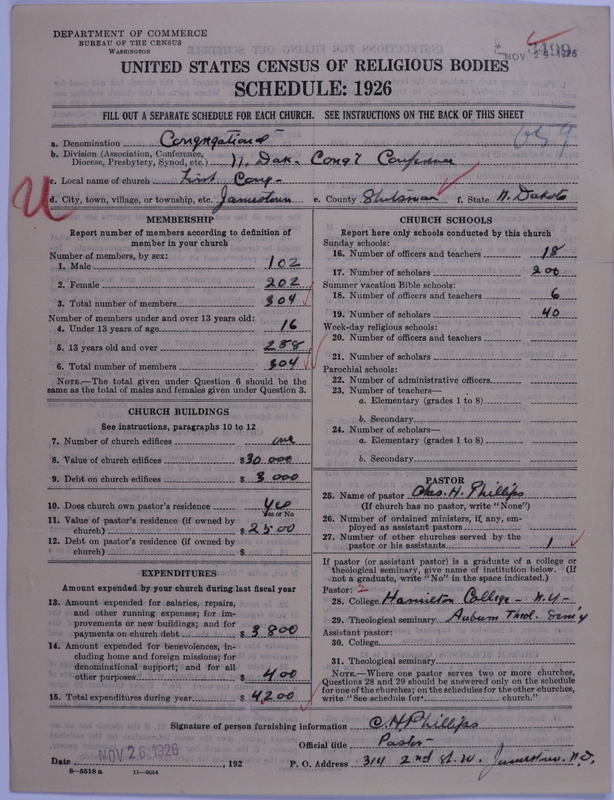 DEPARTMENT OF COMMERCE
BUREAU OF THE CENSUS
WASHINGTON
NOV 26 1926
UNITED STATES CENSUS OF RELIGIOUS BODIES
SCHEDULE: 1926
FILL OUT A SEPARATE SCHEDULE FOR EACH CHURCH. SEE INSTRUCTIONS ON THE BACK OF THIS SHEET
a. Denomination Congregational
b. Division (Association, Conference, Diocese, Presbytery, Synod, etc.) N. Dak. Cong'l Conference
c. Local name of church First Cong-
d. City, town, village, or township, etc. Jamestown e. County Stutsman f. State N. Dakota
MEMBERSHIP
Report number of members according to definition of
member in your church
Number of members, by sex:
1. Male 102
2. Female 202
3. Total number of members 304
Number of members under and over 13 years old:
4. Under 13 years of age 16
5. 13 years old and over 288
6. Total number of members 304
NOTE.—The total given under Question 6 should be the
same as the total of males and females given under Question 3.
CHURCH BUILDINGS
See instructions, paragraphs 10 to 12
7. Number of church edifices one
8. Value of church edifices $30 000
9. Debt on church edifices $ 3 000
10. Does church own pastor's residence Yes
Yes or No
11. Value of pastor's residence (if owned by
church) $2500
12. Debt on pastor's residence (if owned by
church) $
EXPENDITURES
Amount expended by your church during last fiscal year
13. Amount expended for salaries, repairs,
and other running expenses; for im-
provements or new buildings; and for
payments on church debt $3 800
14. Amount expended for benevolences, in-
cluding home and foreign missions; for
denominational support; and for all
other purposes $ 400
15. Total expenditures during year $4,200
CHURCH SCHOOLS
Report here only schools conducted by this church
Sunday schools:
16. Number of officers and teachers 18
17. Number of scholars 200
Summer vacation Bible schools:
18. Number of officers and teachers 6
19. Number of scholars 40
Week-day religious schools:
20. Number of officers and teachers
21. Number of scholars
Parochial schools:
22. Number of administrative officers
23. Number of teachers—
a. Elementary (grades 1 to 8)
b. Secondary
24. Number of scholars—
a. Elementary (grades 1 to 8)
b. Secondary
PASTOR
25. Name of pastor Chas. H. Phillips
(If church has no pastor, write "None")
26. Number of ordained ministers, if any, em-
ployed as assistant pastors
27. Number of other churches served by the
pastor or his assistants 1
If pastor (or assistant pastor) is a graduate of a college or
theological seminary, give name of institution below. (If
not a graduate, write "No" in the space indicated.)
Pastor: 2
28. College Hamilton College - N.Y-
29. Theological seminary Auburn Theol. Sem'y
Assistant pastor:
30. College
31. Theological seminary
NOTE.—Where one pastor serves two or more churches,
Questions 28 and 29 should be answered only on the schedule
for one of the churches; on the schedules for the other churches,
write "See schedule for church."
Signature of person furnishing information C. H. Phillips
Official title Pastor
Date NOV 26 1926, 192 P. O. Address 314 2nd St. W. Jamestown. N.D.
8—5518 a 11—9034